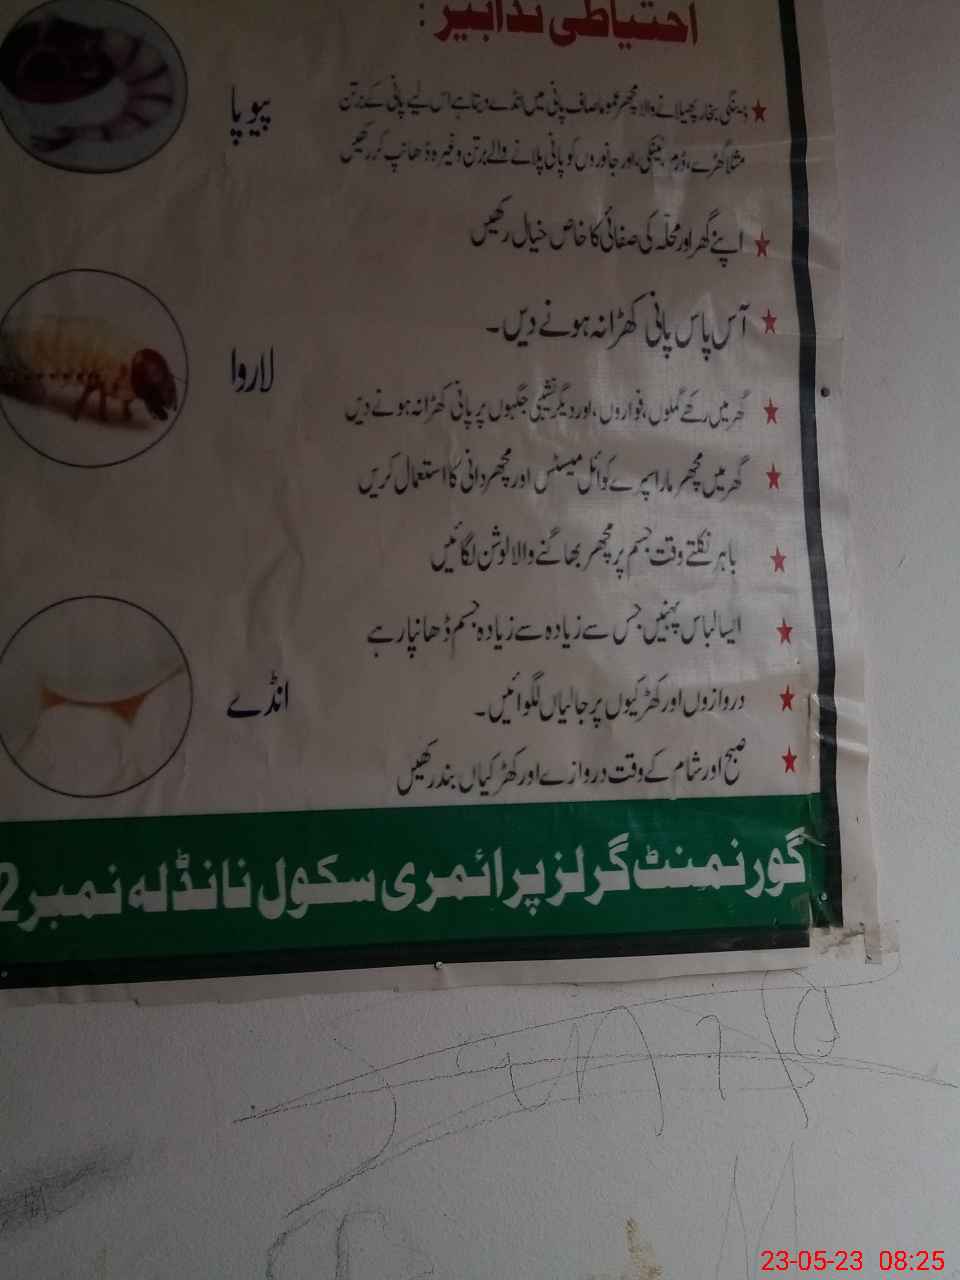 احتیاطی تدابیر :
★ ڈینگی بخار پھیلانے والا مچھر عموما صاف پانی میں انڈے دیتا ہے اس لیے پانی کے برتن
مثلا گھڑے، ڈرم، ٹینکی، اور جانوروں کو پانی پلانے والے برتن وغیرہ ڈھانپ کر رکھیں
★ اپنے گھر اور محلّہ کی صفائی کا خاص خیال رکھیں
★ آس پاس پانی کھڑا نہ ہونے دیں۔
★ گھر میں رکھے گملوں، فواروں، اور دیگر نشیبی جگہوں پر پانی کھڑا نہ ہونے دیں
★ گھر میں مچھر مار اسپرے کوائل میٹس اور مچھر دانی کا استعمال کریں
★ باہر نکلتے وقت جسم پر مچھر بھاگنے والا لوشن لگائیں
★ ایسا لباس پہنیں جس سے زیادہ سے زیادہ جسم ڈھانپا رہے
★ دروازوں اور کھڑکیوں پر جالیاں لگوائیں۔
★ صبح اور شام کے وقت دروازے اور کھڑکیاں بند رکھیں
پیوپا
لاروا
انڈے
گورنمنٹ گرلز پرائمری سکول نانڈلہ نمبر 2
23-05-23 08:25